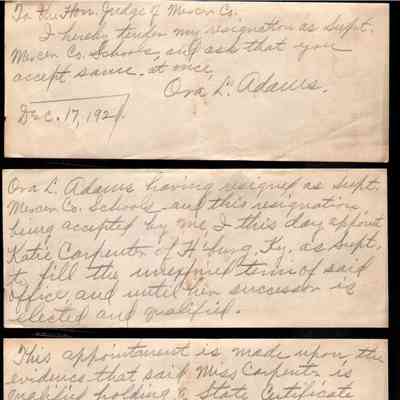 To the Hon. Judge of Mercer Co.
I hereby tender my resignation as Supt.
Mercer Co. Schools and ask that you
accept same at once,
Ora L. Adams.
Dec. 17, 192
Ora L. Adams having resigned as Supt.
Mercer Co. Schools and this resignation
being accepted by me, I this day appoint
Katie Carpenter of H'burg, Ky. as Supt.
to fill the unexpired term of said
office, and until her successor is
elected and qualified.
This appointment is made upon the
evidence that said Miss Carpenter is
qualified holding a State Certificate